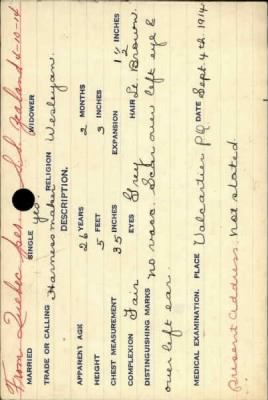 From Quebec per S.S. Zealand 4-10-14
MARRIED SINGLE yes. WIDOWER
TRADE OR CALLING Harnessmaker RELIGION Wesleyan.
DESCRIPTION.
APPARENT AGE 26 YEARS 2 MONTHS
HEIGHT 5 FEET 3 INCHES
CHEST MEASUREMENT 35 INCHES EXPANSION 1½ INCHES
COMPLEXION Fair EYES Grey HAIR Lt. Brown.
DISTINGUISHING MARKS No vacc. Scar over left eye &
over left ear.
MEDICAL EXAMINATION. PLACE Valcartier P.Q. DATE Sept 4th. 1914
Present address. Not stated.